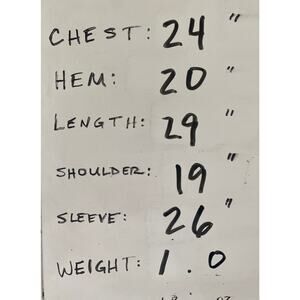 CHEST: 24"
HEM: 20"
LENGTH: 29"
SHOULDER: 19"
SLEEVE: 26"
WEIGHT: 1.0